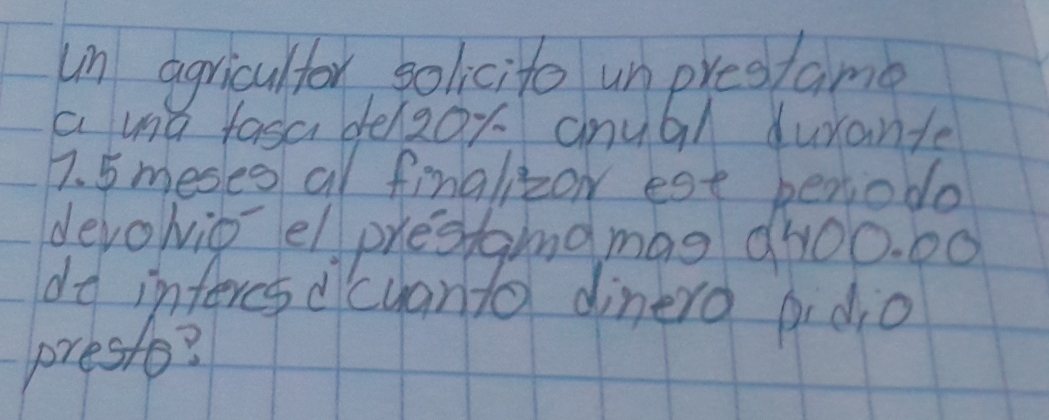 un agricultor solicito un prestamo
a una tasa del 20% anual durante
7.5 meses al finalizar est periodo
devolvió el préstamo mas 400.00
de interes d'cuanto dinero pidio
presto?